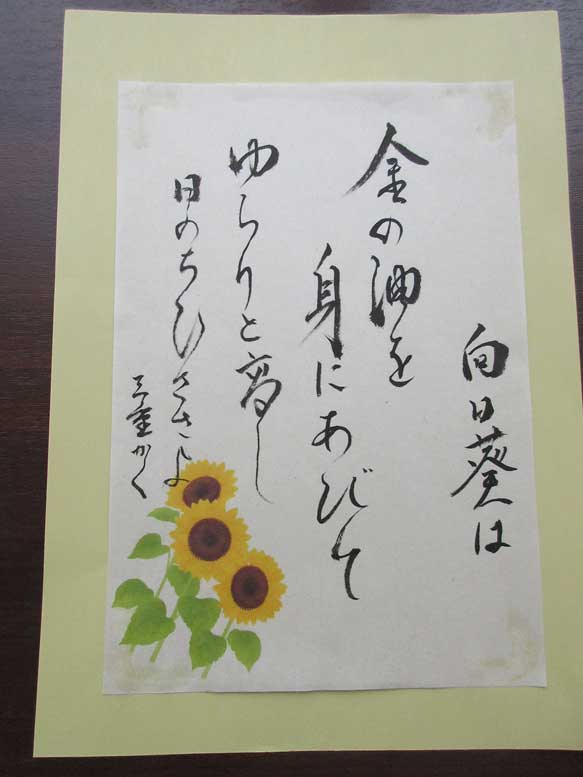 向日葵は
金の油を
身にあびて
ゆらりと高し
日のちひささよ
三重かく